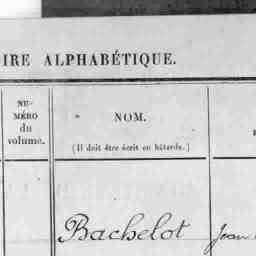 IRE ALPHABÉTIQUE.
NU-
MÉRO
du
volume.
NOM.
(Il doit être écrit en bâtarde.)
Bachelot
Jean